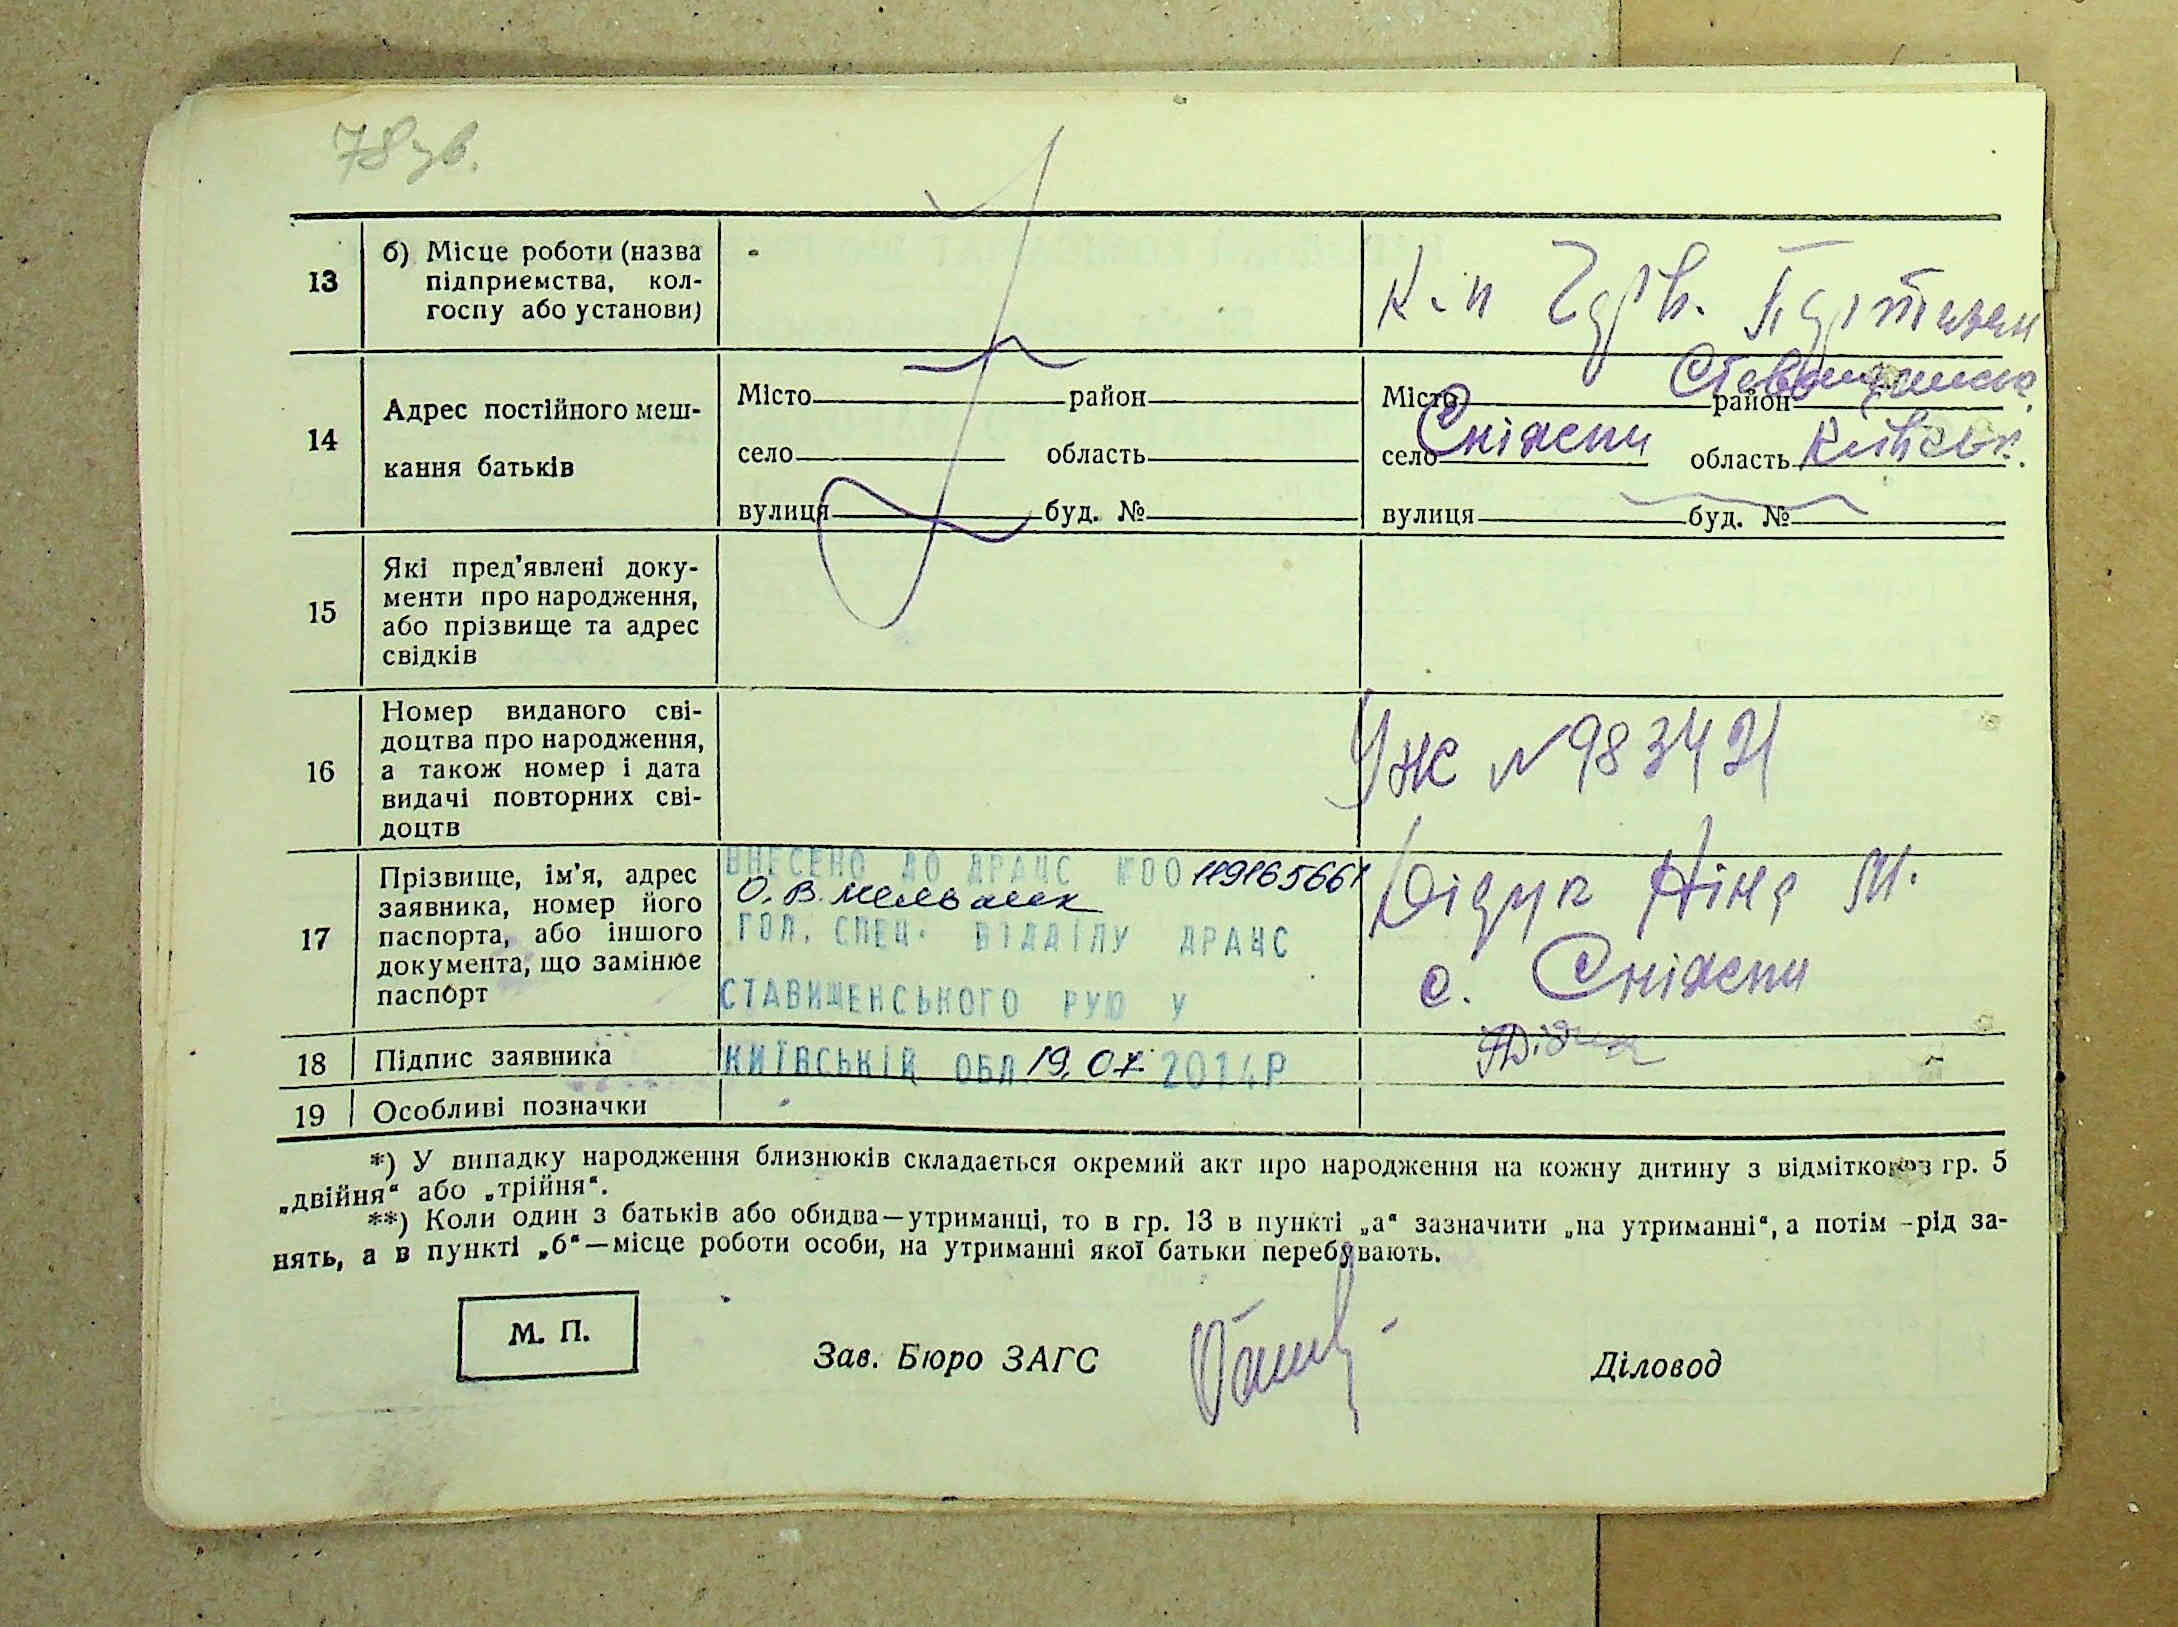 78 зв.
13
б) Місце роботи (назва
підприємства, кол-
госпу або установи)
К-п Черв. Партизан
14
Адрес постійного меш-
кання батьків
Місто район
село область
вулиця буд. №
Місто район Ставищанськ.
село Сніжки область Київськ.
вулиця буд. №
15
Які пред'явлені доку-
менти про народження,
або прізвище та адрес
свідків
16
Номер виданого сві-
доцтва про народження,
а також номер і дата
видачі повторних сві-
доцтв
УЖ №983421
17
Прізвище, ім'я, адрес
заявника, номер його
паспорта, або іншого
документа, що замінює
паспорт
ВНЕСЕНО ДО ДРАЦС №00119165661
О.В. Мельник
ГОЛ. СПЕЦ. ВІДДІЛУ ДРАЦС
СТАВИЩЕНСЬКОГО РУЮ У
КИЇВСЬКІЙ ОБЛ 19.07.2014Р
Дідук Ніна М.
с. Сніжки
18
Підпис заявника
19
Особливі позначки
*) У випадку народження близнюків складається окремий акт про народження на кожну дитину з відміткою в гр. 5
„двійня“ або „трійня“.
**) Коли один з батьків або обидва—утриманці, то в гр. 13 в пункті „а“ зазначити „на утриманні“, а потім -рід за-
нять, а в пункті „б“—місце роботи особи, на утриманні якої батьки перебувають.
М. П.
Зав. Бюро ЗАГС
Діловод